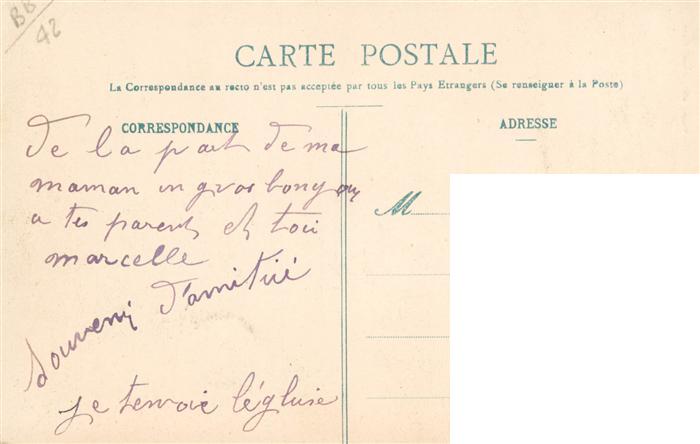 BB
42
CARTE POSTALE
La Correspondance au recto n'est pas acceptée par tous les Pays Etrangers (Se renseigner à la Poste)
CORRESPONDANCE
De la part de ma
maman un gros bonjour
a tes parents et toi
marcelle
Souvenir d'amitié
je tenvoie léglise
ADRESSE
M